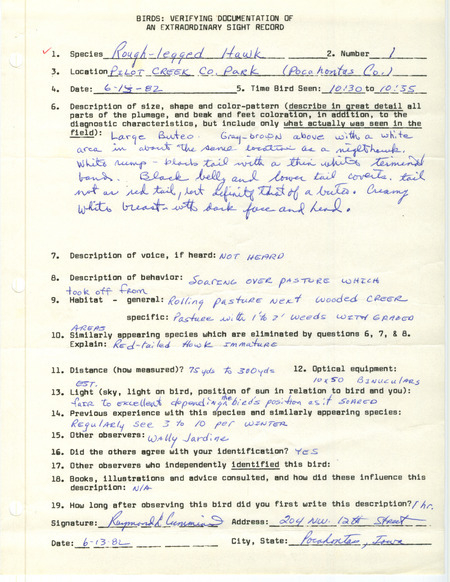 BIRDS: VERIFYING DOCUMENTATION OF
AN EXTRAORDINARY SIGHT RECORD
✓1. Species Rough-legged Hawk 2. Number 1
3. Location PILOT CREEK CO. PARK (Pocahontas Co.)
4. Date: 6-13-82 5. Time Bird Seen: 10:30 to 10:35
6. Description of size, shape and color-pattern (describe in great detail all
parts of the plumage, and beak and feet coloration, in addition, to the
diagnostic characteristics, but include only what actually was seen in the
field): Large Buteo. Gray-brown above with a white
area in about the same location as a nighthawk.
White rump - black tail with a thin white terminal
band. Black belly and lower tail coverts. tail
not as red tail, but definitly that of a buteo. Creamy
white breast with dark face and head.
7. Description of voice, if heard: NOT HEARD
8. Description of behavior: SOARING OVER PASTURE WHICH
took off from
9. Habitat - general: Rolling pasture next wooded creek
specific: Pasture with 1' to 2' weeds with grazed
areas
10. Similarly appearing species which are eliminated by questions 6, 7, & 8.
Explain: Red-tailed Hawk immature
11. Distance (how measured)? 75 yds to 300 yds 12. Optical equipment:
EST. 10x50 Binoculars
13. Light (sky, light on bird, position of sun in relation to bird and you):
fair to excellent depending on the birds position as it soared
14. Previous experience with this species and similarly appearing species:
Regularly see 3 to 10 per winter
15. Other observers: Wally Jardine
16. Did the others agree with your identification? YES
17. Other observers who independently identified this bird:
18. Books, illustrations and advice consulted, and how did these influence this
description: N/A
19. How long after observing this bird did you first write this description? 1 hr.
Signature: Raymond L Cummins Address: 204 NW. 12th Street
Date: 6-13-82 City, State: Pocahontas, Iowa